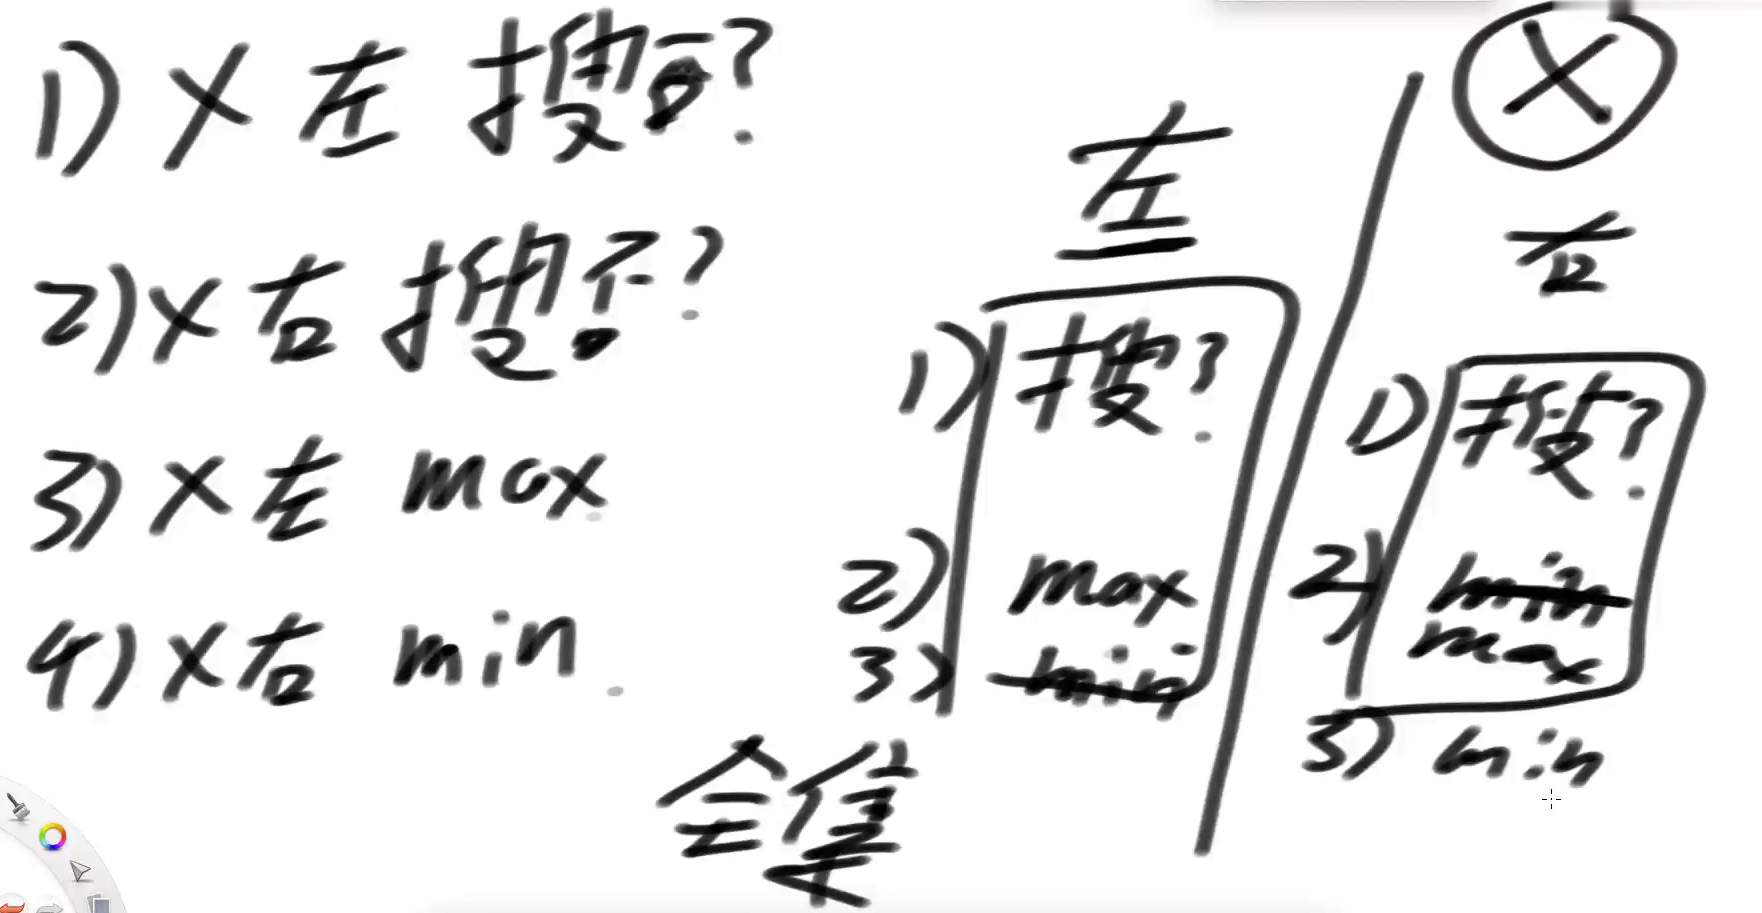 1) X 左 搜否?
2) X 右 搜否?
3) X 左 max
4) X 右 min
全集
左
1) 搜?
2) max
3) min
X
右
1) 搜?
2) min
max
3) min